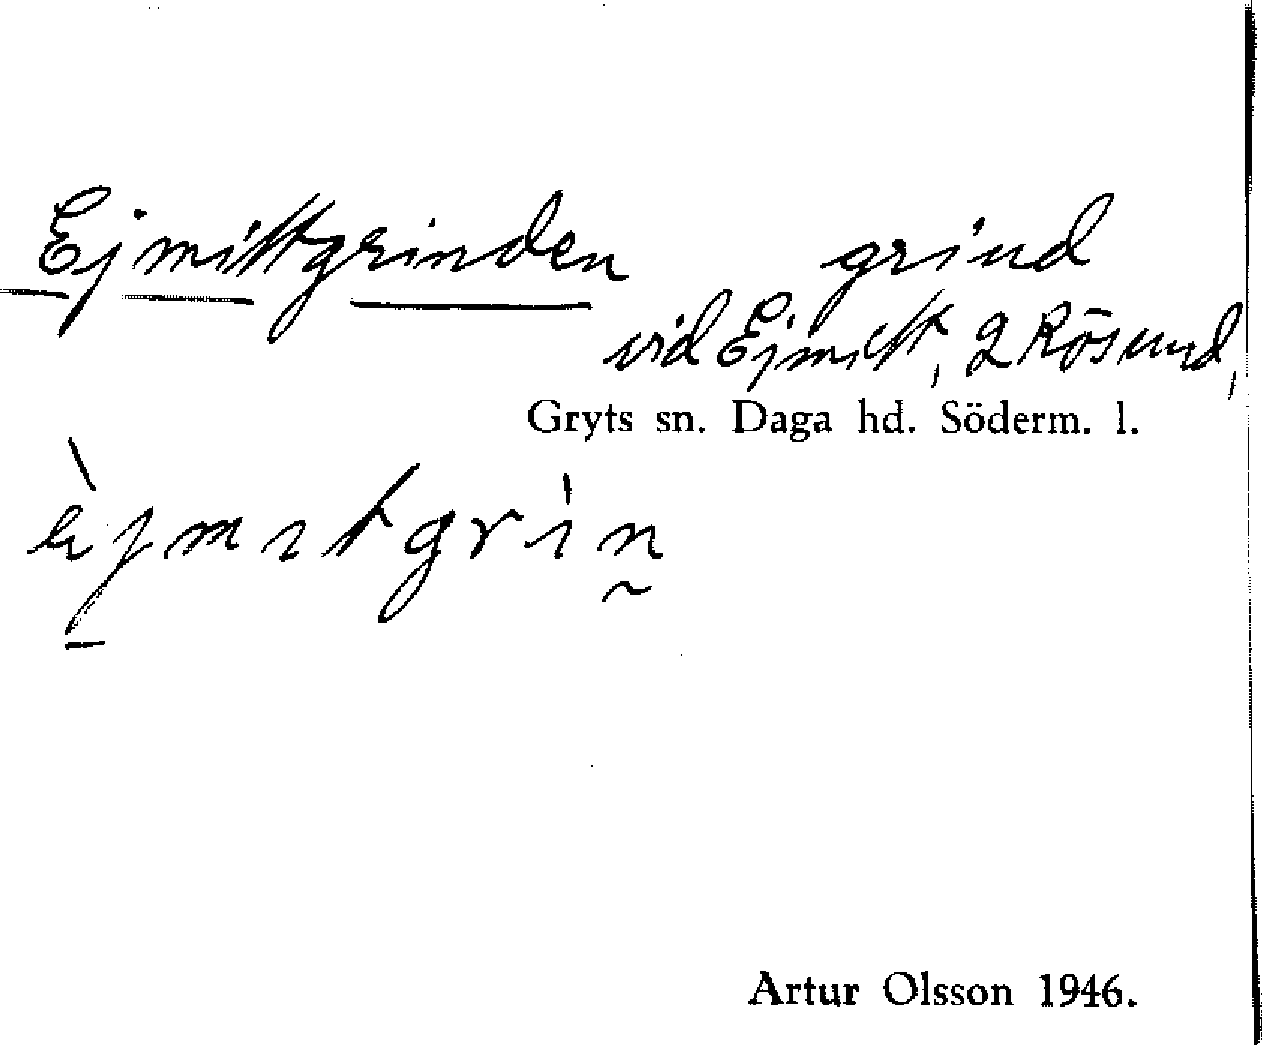 Ejmittgrinden grind
vid Ejmitt, 2 Rösund,
Gryts sn. Daga hd. Söderm. l.
èjmıtgrın̰
Artur Olsson 1946.